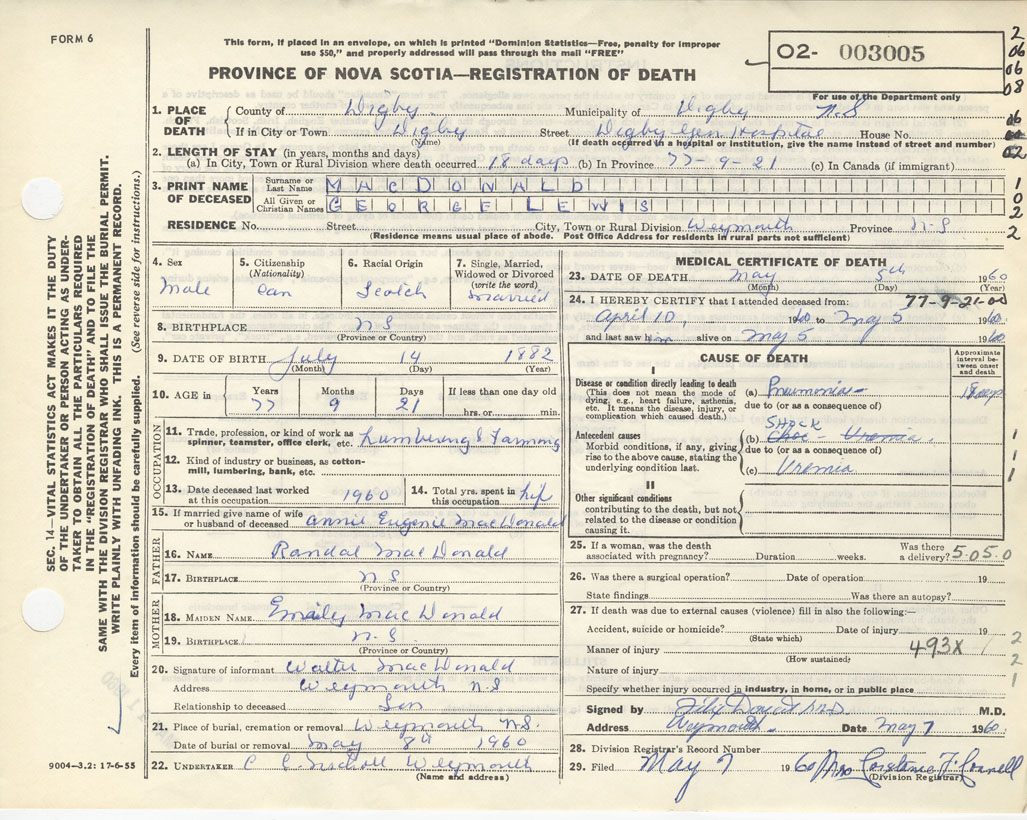 FORM 6
This form, if placed in an envelope, on which is printed "Dominion Statistics—Free, penalty for improper
use $50," and properly addressed will pass through the mail "FREE"
PROVINCE OF NOVA SCOTIA—REGISTRATION OF DEATH
02- 003005
For use of the Department only
2
06
06
08
1. PLACE OF DEATH
County of Digby Municipality of Digby N.S
If in City or Town Digby Street Digby Gen Hospital House No.
(Name) (If death occurred in a hospital or institution, give the name instead of street and number)
06
02
2. LENGTH OF STAY (in years, months and days)
(a) In City, Town or Rural Division where death occurred 18 days (b) In Province 77-9-21 (c) In Canada (if immigrant)
3. PRINT NAME OF DECEASED
Surname or Last Name MACDONALD
All Given or Christian Names GEORGE LEWIS
1
0
2
2
RESIDENCE No. Street City, Town or Rural Division Weymouth Province N-S
(Residence means usual place of abode. Post Office Address for residents in rural parts not sufficient)
4. Sex
Male
5. Citizenship
(Nationality)
Can
6. Racial Origin
Scotch
7. Single, Married,
Widowed or Divorced
(write the word)
Married
8. BIRTHPLACE NS
(Province or Country)
9. DATE OF BIRTH July 14 1882
(Month) (Day) (Year)
10. AGE in
Years Months Days If less than one day old
77 9 21 hrs. or min.
OCCUPATION
11. Trade, profession, or kind of work as
spinner, teamster, office clerk, etc. Lumbering & Farming
12. Kind of industry or business, as cotton-
mill, lumbering, bank, etc.
13. Date deceased last worked
at this occupation 1960
14. Total yrs. spent in
this occupation life
15. If married give name of wife
or husband of deceased Annie Eugenie MacDonald
FATHER
16. NAME Randal MacDonald
17. BIRTHPLACE NS
(Province or Country)
MOTHER
18. MAIDEN NAME Emily MacDonald
19. BIRTHPLACE N-S
(Province or Country)
20. Signature of informant Walter MacDonald
Address Weymouth N-S
Relationship to deceased Son
21. Place of burial, cremation or removal Weymouth N.S.
Date of burial or removal May 8th 1960
22. UNDERTAKER Weymouth
(Name and address)
MEDICAL CERTIFICATE OF DEATH
23. DATE OF DEATH May 5th 1960
(Month) (Day) (Year)
24. I HEREBY CERTIFY that I attended deceased from: 77-9-21-00
April 10, 1960 to May 5 1960
and last saw him alive on May 5 1960
CAUSE OF DEATH
Approximate
interval be-
tween onset
and death
I
Disease or condition directly leading to death
(This does not mean the mode of
dying, e.g., heart failure, asthenia,
etc. It means the disease, injury, or
complication which caused death.)
(a) Pneumonia 18 days
due to (or as a consequence of)
SHOCK
Antecedent causes
Morbid conditions, if any, giving
rise to the above cause, stating the
underlying condition last.
(b) Uremia.
due to (or as a consequence of)
(c) Uremia
1
1
1
II
Other significant conditions
contributing to the death, but not
related to the disease or condition
causing it.
25. If a woman, was the death
associated with pregnancy? Duration weeks. Was there
a delivery? 5.05.0
26. Was there a surgical operation? Date of operation 19
State findings Was there an autopsy?
27. If death was due to external causes (violence) fill in also the following:—
Accident, suicide or homicide? Date of injury 19
(State which)
Manner of injury 493X
(How sustained)
Nature of injury
2
2
1
Specify whether injury occurred in industry, in home, or in public place
Signed by M.D.
Address Weymouth Date May 7 1960
28. Division Registrar's Record Number
29. Filed May 9 1960 Mrs Constance F. Connell
(Division Registrar)
SEC. 14—VITAL STATISTICS ACT MAKES IT THE DUTY
OF THE UNDERTAKER OR PERSON ACTING AS UNDER-
TAKER TO OBTAIN ALL THE PARTICULARS REQUIRED
IN THE "REGISTRATION OF DEATH" AND TO FILE THE
SAME WITH THE DIVISION REGISTRAR WHO SHALL ISSUE THE BURIAL PERMIT.
WRITE PLAINLY WITH UNFADING INK. THIS IS A PERMANENT RECORD.
Every item of information should be carefully supplied. (See reverse side for instructions.)
9004—3.2: 17-6-55